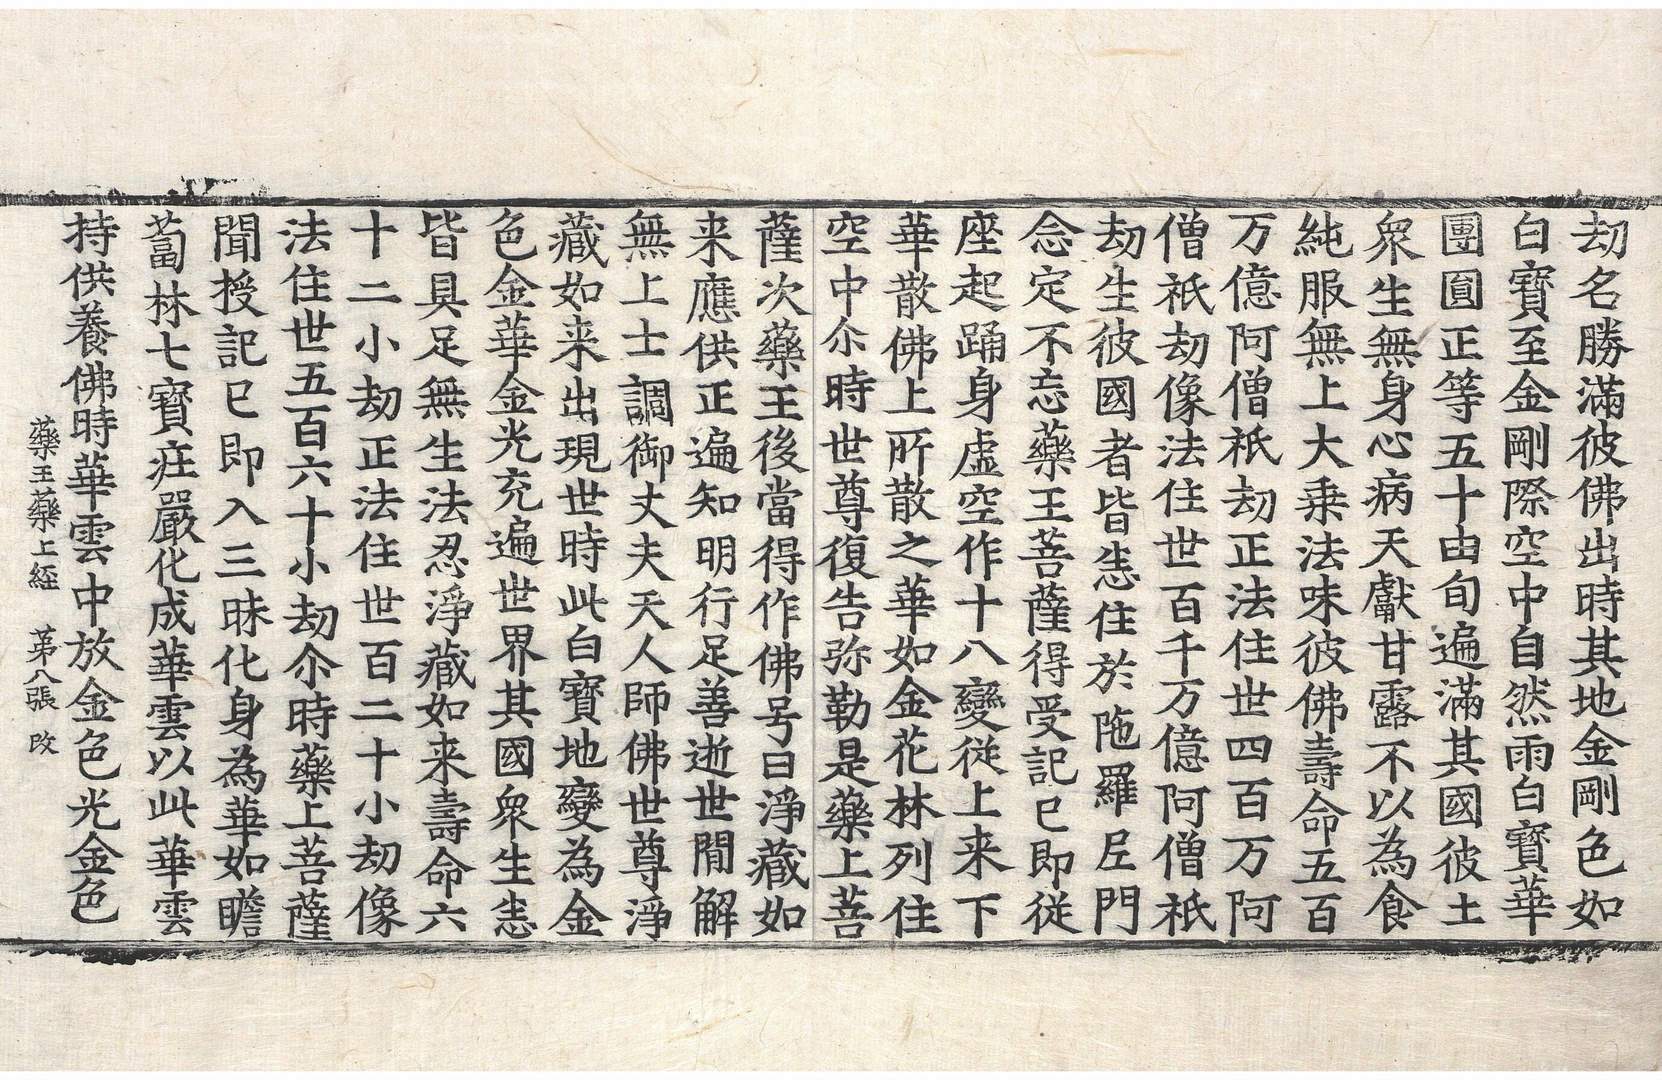 劫名勝滿彼佛出時其地金剛色如
白寶至金剛際空中自然雨白寶華
團圓正等五十由旬遍滿其國彼土
衆生無身心病天獻甘露不以為食
純服無上大乗法味彼佛壽命五百
万億阿僧祇劫正法住世四百万阿
僧祇劫像法住世百千万億阿僧祇
劫生彼國者皆悉住於陁羅尼門
念定不忘藥王菩薩得受記已即従
座起踊身虚空作十八變従上来下
華散佛上所散之華如金花林列住
空中尒時世尊復告弥勒是藥上菩
薩次藥王後當得作佛号曰淨藏如
来應供正遍知明行足善逝世間解
無上士調御丈夫天人師佛世尊淨
藏如来出現世時此白寶地變為金
色金華金光充遍世界其國衆生悉
皆具足無生法忍淨藏如来壽命六
十二小劫正法住世百二十小劫像
法住世五百六十小劫尒時藥上菩薩
聞授記已即入三昧化身為華如瞻
蔔林七寶㽵嚴化成華雲以此華雲
持供養佛時華雲中放金色光金色
藥王藥上経 第八張 改